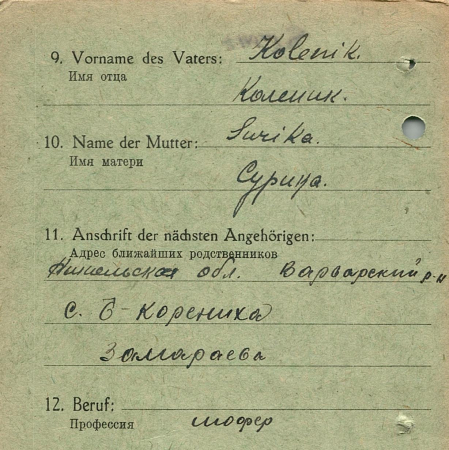 9. Vorname des Vaters: Kolenik.
Имя отца
Коленик.
10. Name der Mutter: Surika.
Имя матери
Сурица.
11. Anschrift der nächsten Angehörigen:
Адрес ближайших родственников
обл. Варварский р-н
с. Б-Корениха
Замараева
12. Beruf:
Профессия шофер